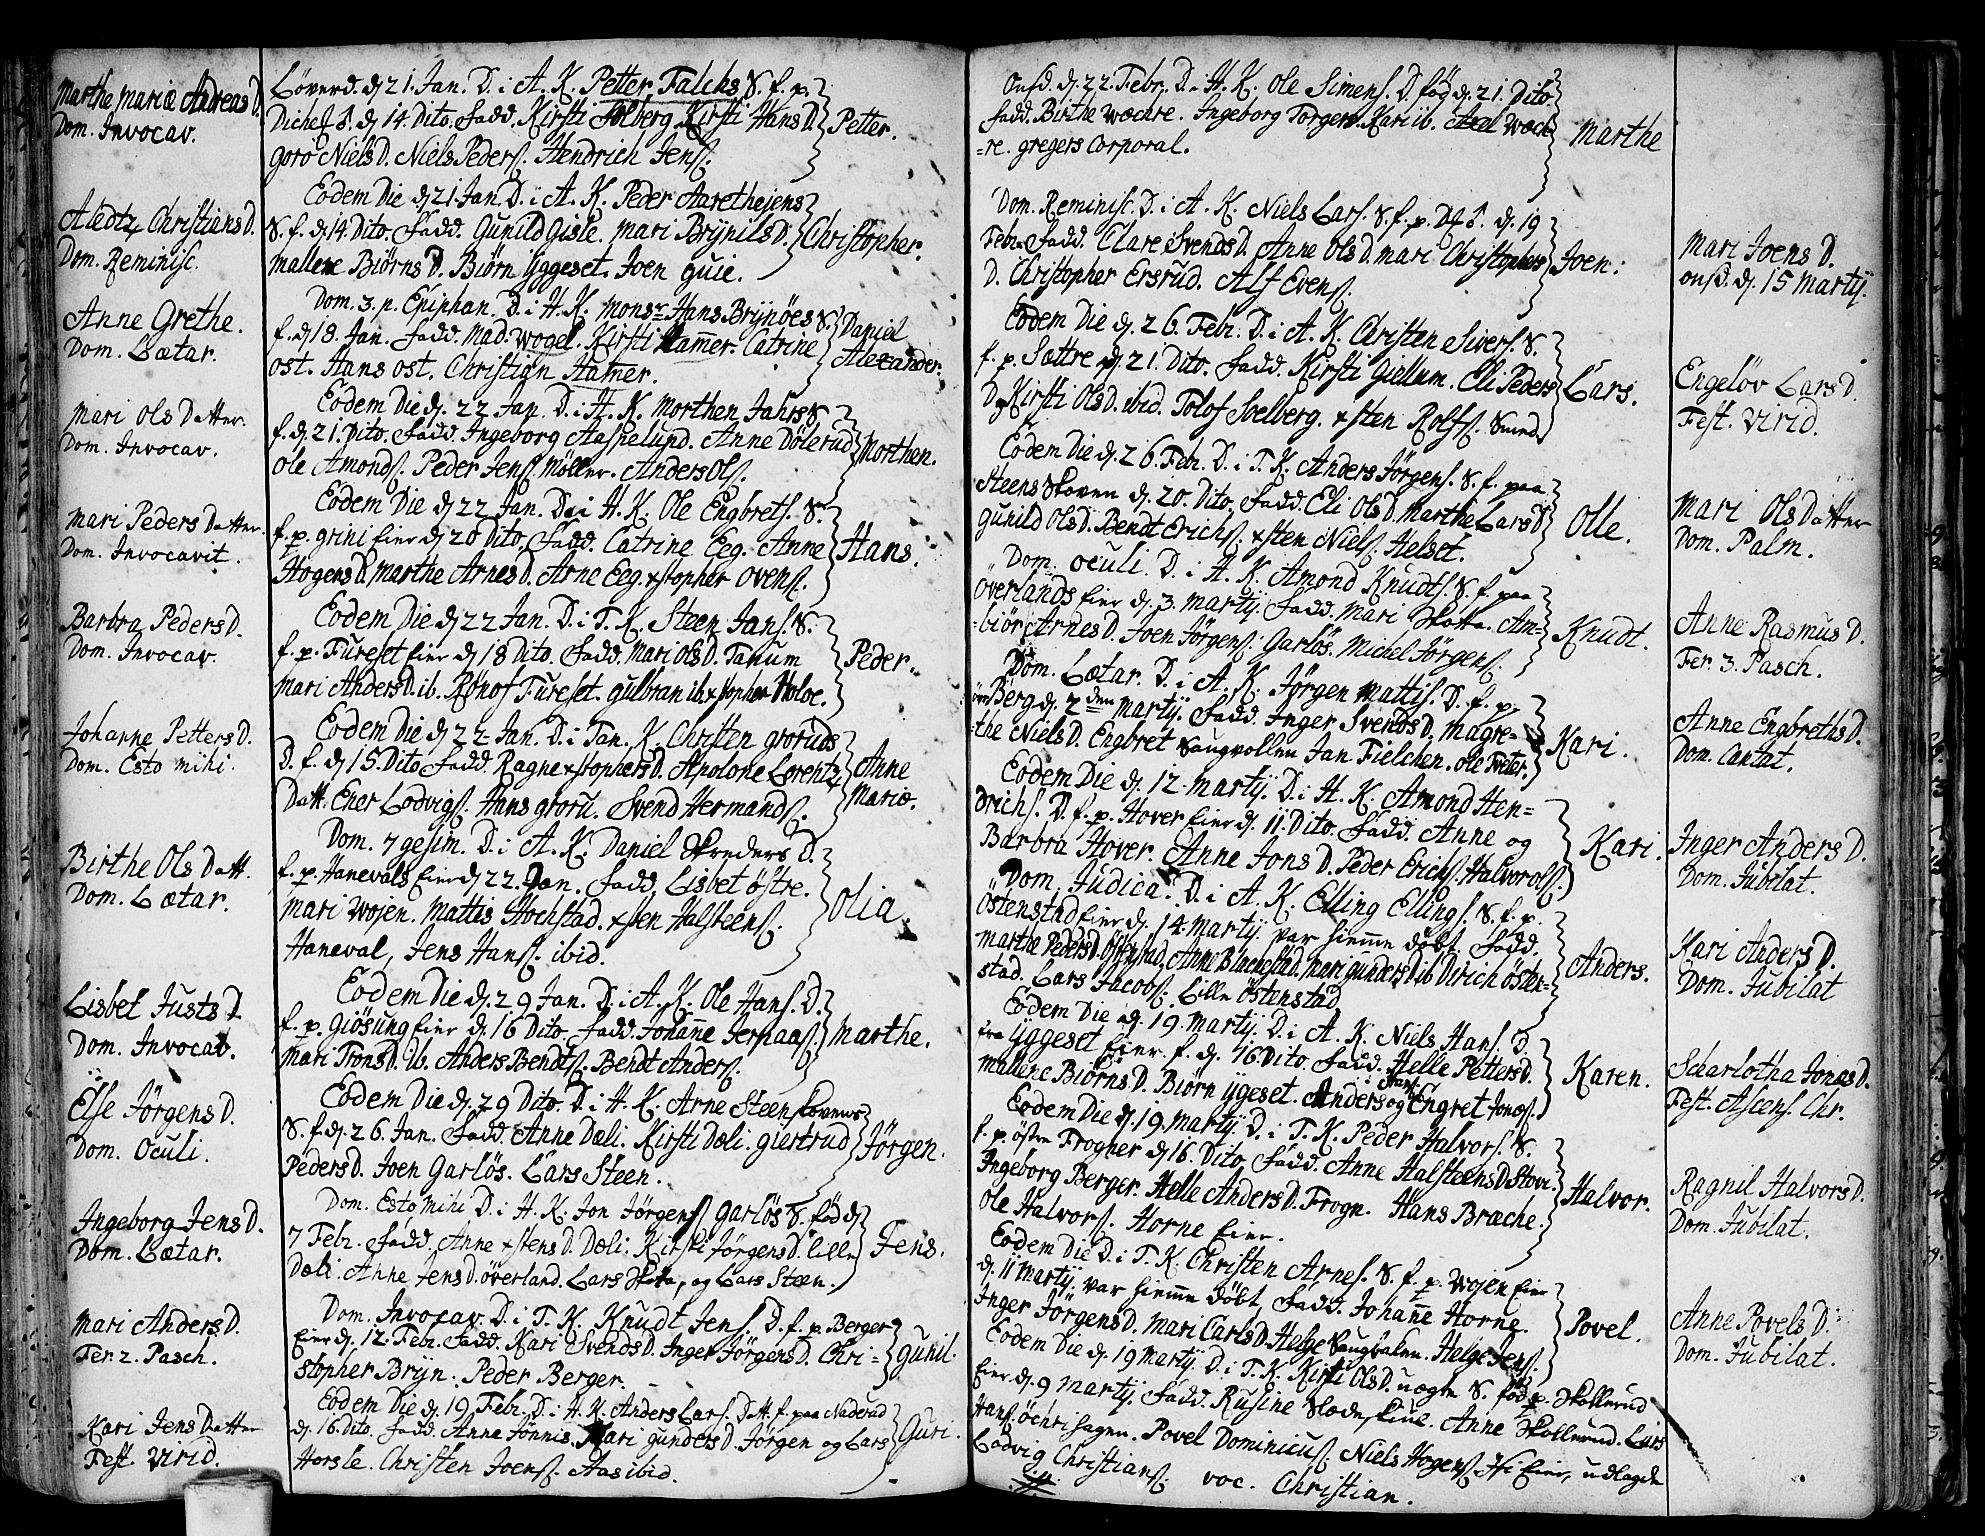 Marthe Mariæ Andreas D.
Dom. Invocav.
Aledtz Christians D.
Dom. Reminisc.
Anne Grethe.
Dom. Lætar.
Mari Ols Datter.
Dom. Invocav.
Mari Peders Datter.
Dom. Invocavit.
Barbra Peders D.
Dom. Invocav.
Johanne Petters D.
Dom. Esto mihi.
Birthe Ols Datt.
Dom. Lætar.
Lisbet Justs D.
Dom. Invocav.
Else Jörgens D.
Dom. Oculi.
Ingeborg Jens D.
Dom. Lætar.
Mari Anders D.
Fer. 2. Pasch.
Kari Jens Datter
Fest. Virid.
Löverd. d. 21. Jan. D. i A. K. Petter Falchs S. f. p.
d. 14. Dito. Fadd. Kirsti Solberg. Kirsti Hans D.
Goro Niels D. Niels Peders. Hendrich Jens.
Petter.
Eodem Die d. 21. Jan. D. i A. K. Peder Aarethejens
S. f. d. 14. Dito. Fadd. Gunild Gisle. Mari Brynils D.
Mallene Biörns D. Biörn Yggeset. Joen Guie.
Christopher.
Dom. 3. p. Epiphan. D. i H. K. Monsr Hans Brynöes S.
f. d. 18. Jan. Fadd. Mad. Wogel. Kirsti Hamer. Catrine
Ost. Hans Ost. Christian Hamer.
Daniel
Alexander.
Eodem Die d. 22 Jan. D. i H. K. Morthen Jahrs S.
f. d. 21. Dito. Fadd. Ingeborg Aaspelund. Anne Dölerud
Ole Amonds. Peder Jens Möller. Anders Ols.
Morthen.
Eodem Die d. 22 Jan. D. i H. K. Ole Engbrets. S.
f. p. Grini Eier d. 20 Dito. Fadd. Catrine Eeg. Anne
Hogens D. Marthe Arnes D. Arne Eeg. xstopher Ovens.
Hans.
Eodem Die d. 22 Jan. D. i T. K. Steen Jans. S.
f. p. Fureset Eier d. 18 Dito. Fadd. Mari Ols D. Tanum
Mari Anders D. ib. Rönof Fureset. Gulbran ib. xstopher Holoe.
Peder.
Eodem Die d. 22 Jan. D. i Tan. K. Christen Groruds
D. f. d. 15. Dito Fadd. Ragne xstophers D. Apolone Lorentz
Datt. Ener Lodvigs. Hans Groru. Svend Hermands.
Anne
Mariæ.
Dom. 7gesim. D. i A. K. Daniel Skreders D.
f. p. Hanevals Eier d. 22. Jan. Fadd. Lisbet Östre.
Mari Wojen. Mattis Hochstad. xsten Halsteens.
Haneval, Jens Hans. ibid.
Olia.
Eodem Die d. 29 Jan. D. i A. K. Ole Hans. D.
f. p. Giösung Eier d. 16 Dito. Fadd. Johanne Jerpaas.
Mari Trons D. ib. Anders Bendts. Bendt Anders.
Marthe.
Eodem Die d. 29 Dito. D. i H. K. Arne Steenskovens
S. f. d. 26. Jan. Fadd. Anne Dæli. Kirsti Dæli. Giertrud
Peders D. Joen Garlös. Lars Steen.
Jörgen.
Dom. Esto Mihi D. i H. K. Jon Jörgens Garlös S. föd d.
7 Febr. Fadd. Anne xstens D. Dæli. Kirsti Jörgens D. Lille
Dæli. Anne Jens D. Överland. Lars Skotta, og Lars Steen.
Jens.
Dom. Invocav. D. i T. K. Knudt Jens. D. f. p. Berger
Eier d. 12. Febr. Fadd. Kari Svends D. Inger Jörgens D. Chri=
stopher Bryn. Peder Berger.
Gunil.
Eodem Die d. 19. Febr. D. i H. K. Anders Lars. Datt. f. paa Naderud
d. 16. Dito. Fadd. Anne Jonnis. Mari Gunders D. Jörgen og Lars
Horsle. Christen Joens. Aas ibid.
Guri.
Onsd. d. 22. Febr. D. i H. K. Ole Simens. D. fög d. 21. Dito.
Fadd. Birthe Wæchre. Ingeborg Torgers. Kari ib. Axel Wæch
=re. Gregers Corporal.
Marthe
Dom. Reminisc. D. i A. K. Niels Lars. S. f. p. d. 19
Febr. Fadd. Clare Svends D. Anne Ols D. Mari Christophers
D. Christopher Ersrud. Alf Evens.
Joen.
Eodem Die d. 26. Febr. D. i A. K. Christen Sivers. S.
f. p. Sættre d. 21. Dito. Fadd. Kirsti Giellum. Eli Peders
D. Kirsti Ols D. ibid. Tolof Soelberg. xsten Rolfs. Smed.
Lars.
Eodem Die d. 26. Febr. D. i T. K. Anders Jörgens. S. f. paa
Steens Skoven d. 20. Dito. Fadd. Eli Ols D. Marthe Lars D.
Gunild Ols D. Bendt Erichs. xsten Niels. Helset.
Olle.
Dom. Oculi. D. i A. K. Amond Knudts. S. f. paa
Överlands Eier d. 3. Martij. Fadd. Mari Skotta. Am=
=biör Arnes D. Joen Jörgens. Garlös. Michel Jörgens.
Knudt.
Dom. Lætar. D. i A. K. Jörgen Mattis. D. f. p.
Berg d. 2den Martij. Fadd. Inger Svends D. Magre=
=the Niels D. Engbret Saugvollen Jan Fielchen. Ole Tveter.
Kari.
Eodem Die d. 12. Martij. D. i H. K. Amond Hen=
drichs. D. f. p. Hover Eier d. 11. Dito. Fadd. Anne og
Barbra Hover. Anne Jons D. Peder Erichs. Halvor Ols.
Kari.
Dom. Judica. D. i A. K. Elling Ellings. S. f. p.
Östenstad Eier d. 14. Martij. var hiemme döbt. Fadd.
Marthe Peders D. Östenstad. Anne Blachestad. Mari Gunders D. ib. Dirich Östen=
stad. Lars Jacobs. Lille Östenstad.
Anders.
Eodem Die d. 19. Martij. D. i A. K. Niels Hans. D.
fra Yggeset Eier. f. d. 16. Dito. Fadd. Helle Petters D.
Mallene Biörns D. Biörn Ygeset. Anders og Engret Jons.
Karen.
Eodem Die d. 19. Martij D. i T. K. Peder Halvors. S.
f. p. Östre Frogner d. 16. Dito. Fadd. Anne Halsteens D. Stovi.
Ingeborg Berger. Helle Anders D. Frogn. Hans Bræche.
Ole Halvors. Horne Eier.
Halvor.
Eodem Die D. i T. K. Christen Arnes. S. f. p. Wojen Eier
d. 11 Martij. var hiemme döbt, Fadd. Johanne Horne.
Inger Jörgens D. Mari Carls D. Helge Saugbakken. Helge Jens.
Povel.
Eodem Die d. 19 Martij. D. i T. K. Kirsti Ols D. uægte S. föd p. Skollerud
Eier d. 9 Martij. Fadd. Rusine Slædeskiue. Anne Skollerud. Lars
Hans. Öchrisagen. Povel Dominicus. Niels Hogens. Eier, udlagde
Lodvig Christians. voc. Christian.
Mari Joens D.
Onsd. d. 15 Martij.
Engelöv Lars D.
Fest. Virid.
Mari Ols Datter
Dom. Palm.
Anne Rasmus D.
Fer. 3. Pasch.
Anne Engbreths D.
Dom. Cantat.
Inger Anders D.
Dom. Jubilat.
Kari Anders D.
Dom. Jubilat
Scharlotha Jonas D.
Fest. Ascens. Chr.
Ragnil Halvors D.
Dom. Jubilat.
Anne Povels D.
Dom. Jubilat.